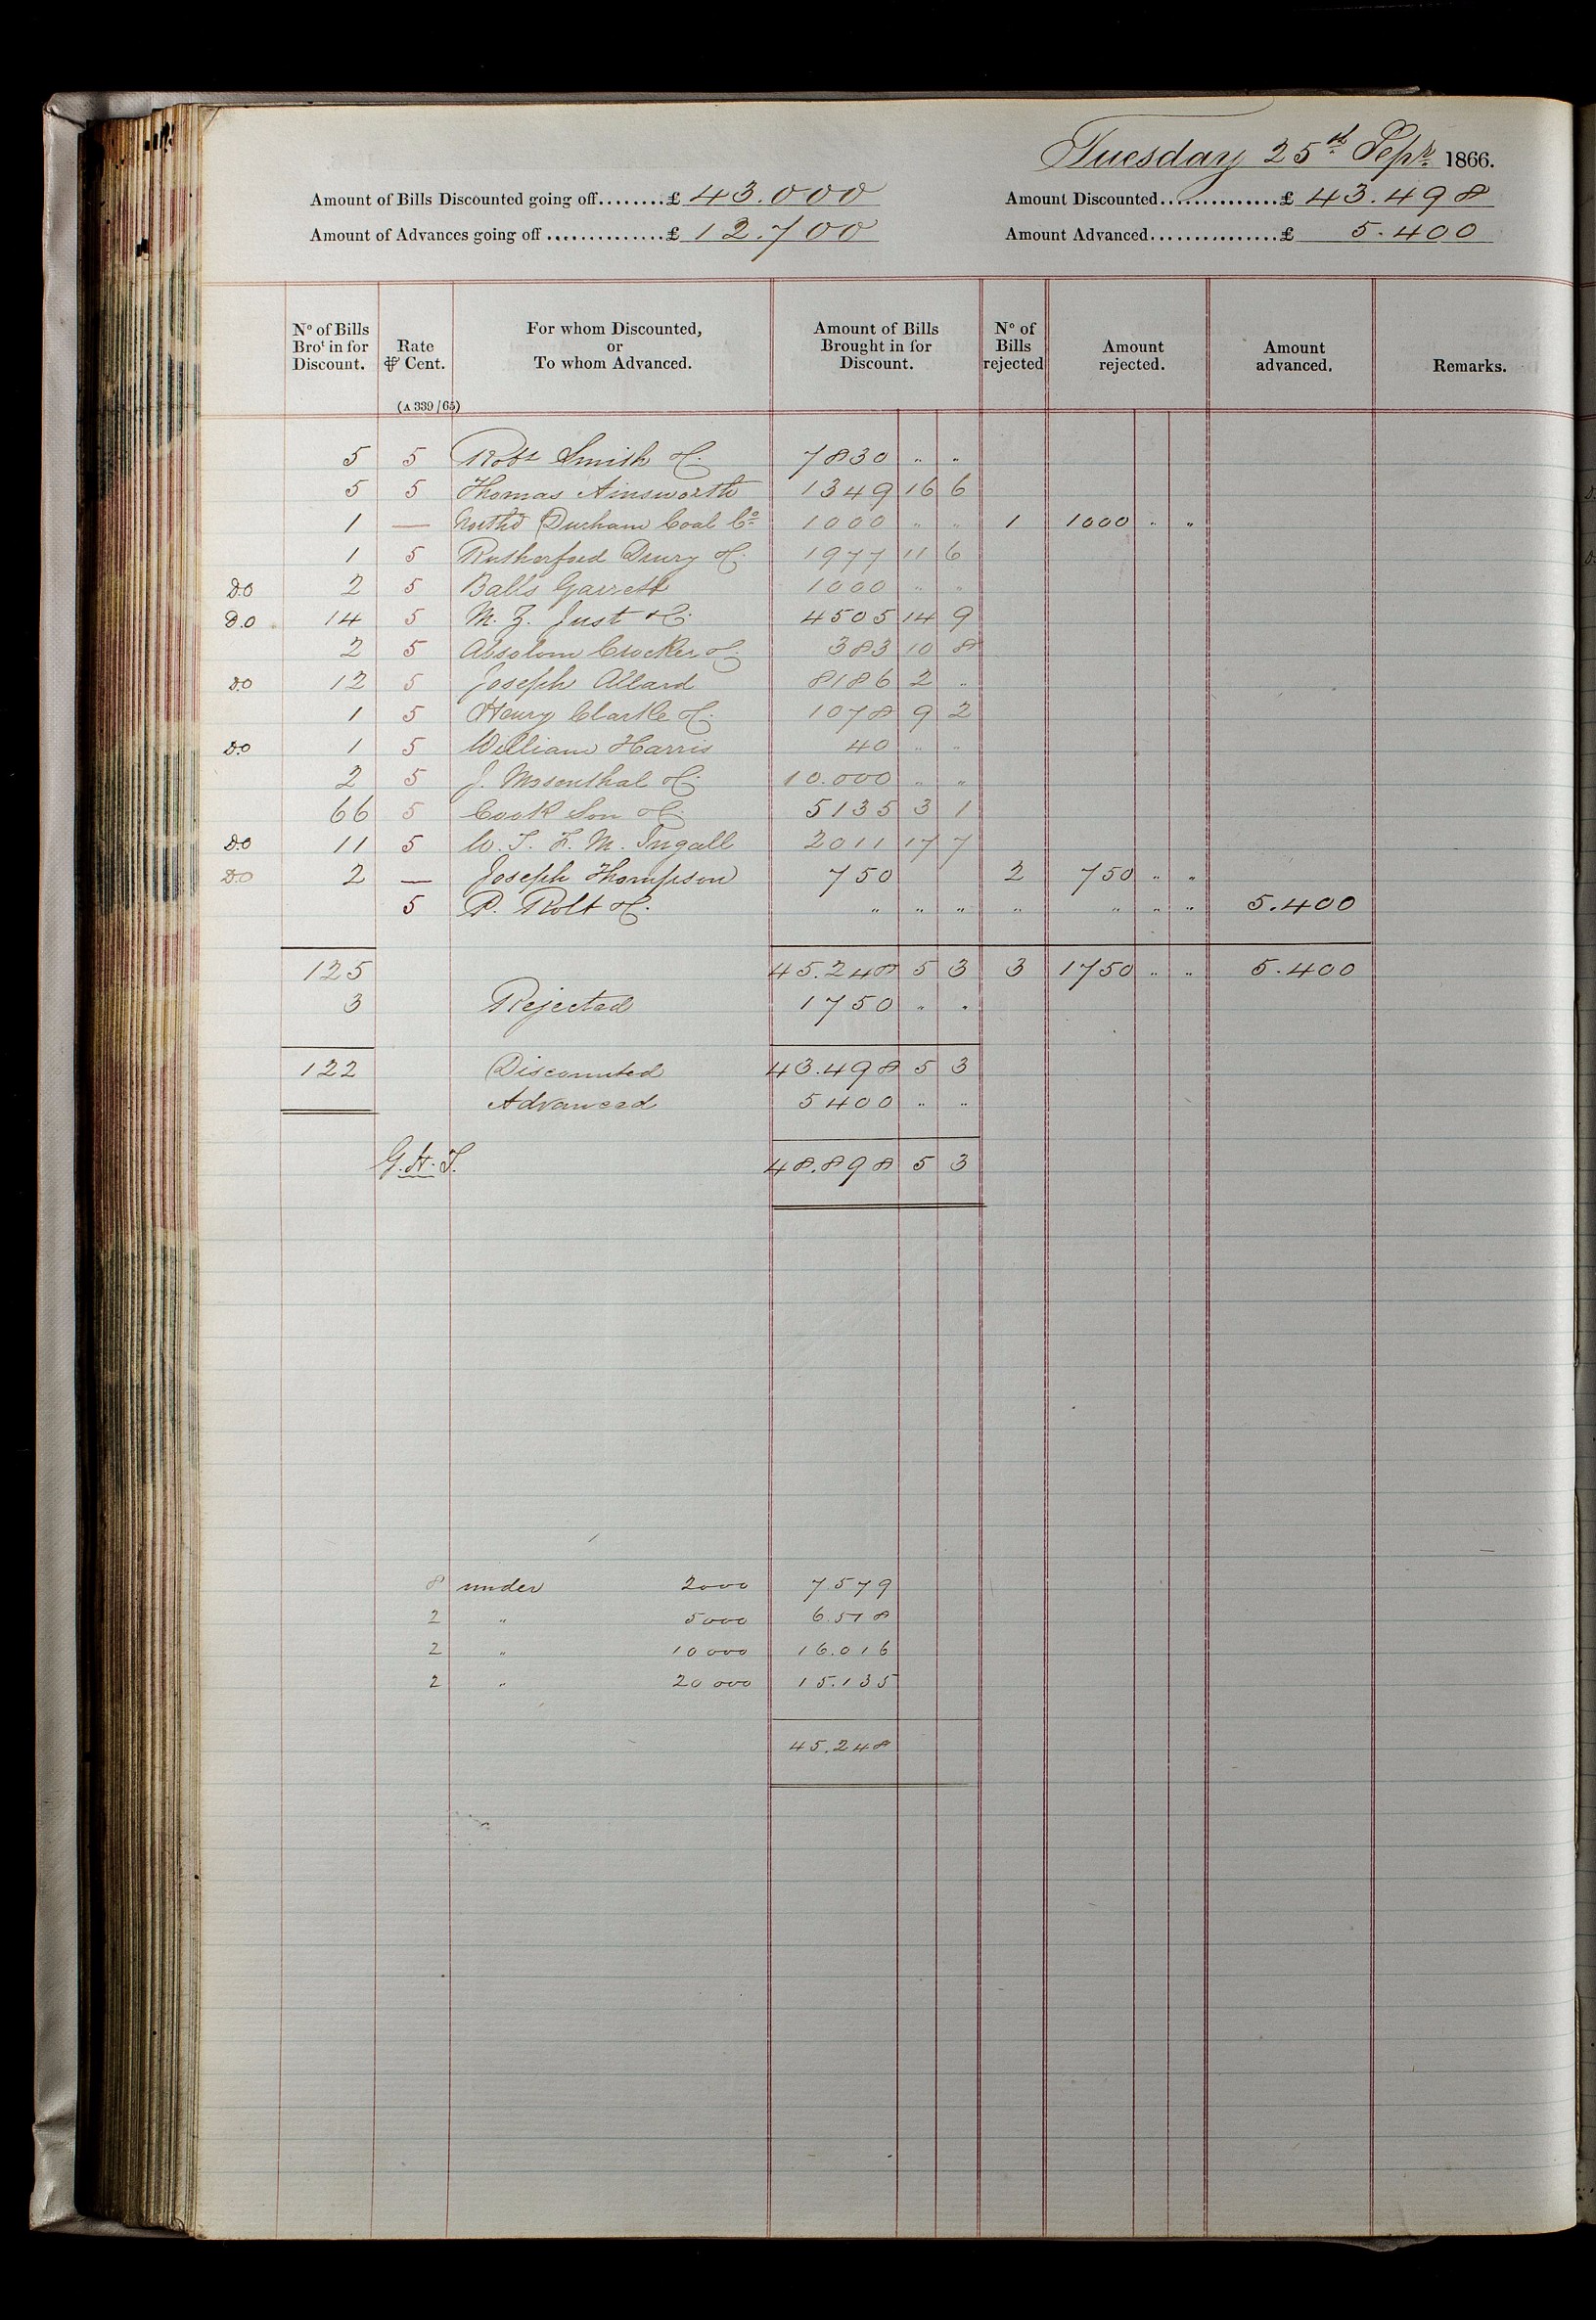 Tuesday 25th Sepr 1866.
Amount of Bills Discounted going off........£ 43.000 Amount Discounted...............£ 43.498
Amount of Advances going off...............£ 12.700 Amount Advanced................£ 5.400
No of Bills Brot in for Discount. Rate ⅌ Cent. For whom Discounted, or To whom Advanced. Amount of Bills Brought in for Discount. No of Bills rejected Amount rejected. Amount advanced. Remarks.
(A 339/65)
5 5 Robt Smith & C. 7830 " "
5 5 Thomas Ainsworth 1349 16 6
1 — North Durham Coal Co 1000 " " 1 1000 " "
1 5 Rutherford Drury & C. 1977 11 6
D.O 2 5 Balls Garrett 1000 " "
D.O 14 5 M. Z. Just & C. 4505 14 9
2 5 Absolom Crocker & C. 383 10 8
D.O 12 5 Joseph Allard 8186 2 "
1 5 Henry Clarke & C. 1078 9 2
D.O 1 5 William Harris 40 " "
2 5 J. Mosenthal & C. 10.000 " "
66 5 Cook Son & C. 5135 3 1
D.O 11 5 W. T. F. M. Ingall 2011 17 7
D.O 2 — Joseph Thompson 750 2 750 " "
5 P. Rolt & C. " " " " " " " 5.400
125 45.248 5 3 3 1750 " " 5.400
3 Rejected 1750 " "
122 Discounted 43.498 5 3
Advanced 5400 " "
G.H.T. 48.898 5 3
8 under 2000 7579
2 " 5000 6.518
2 " 10000 16.016
2 " 20000 15.135
45.248